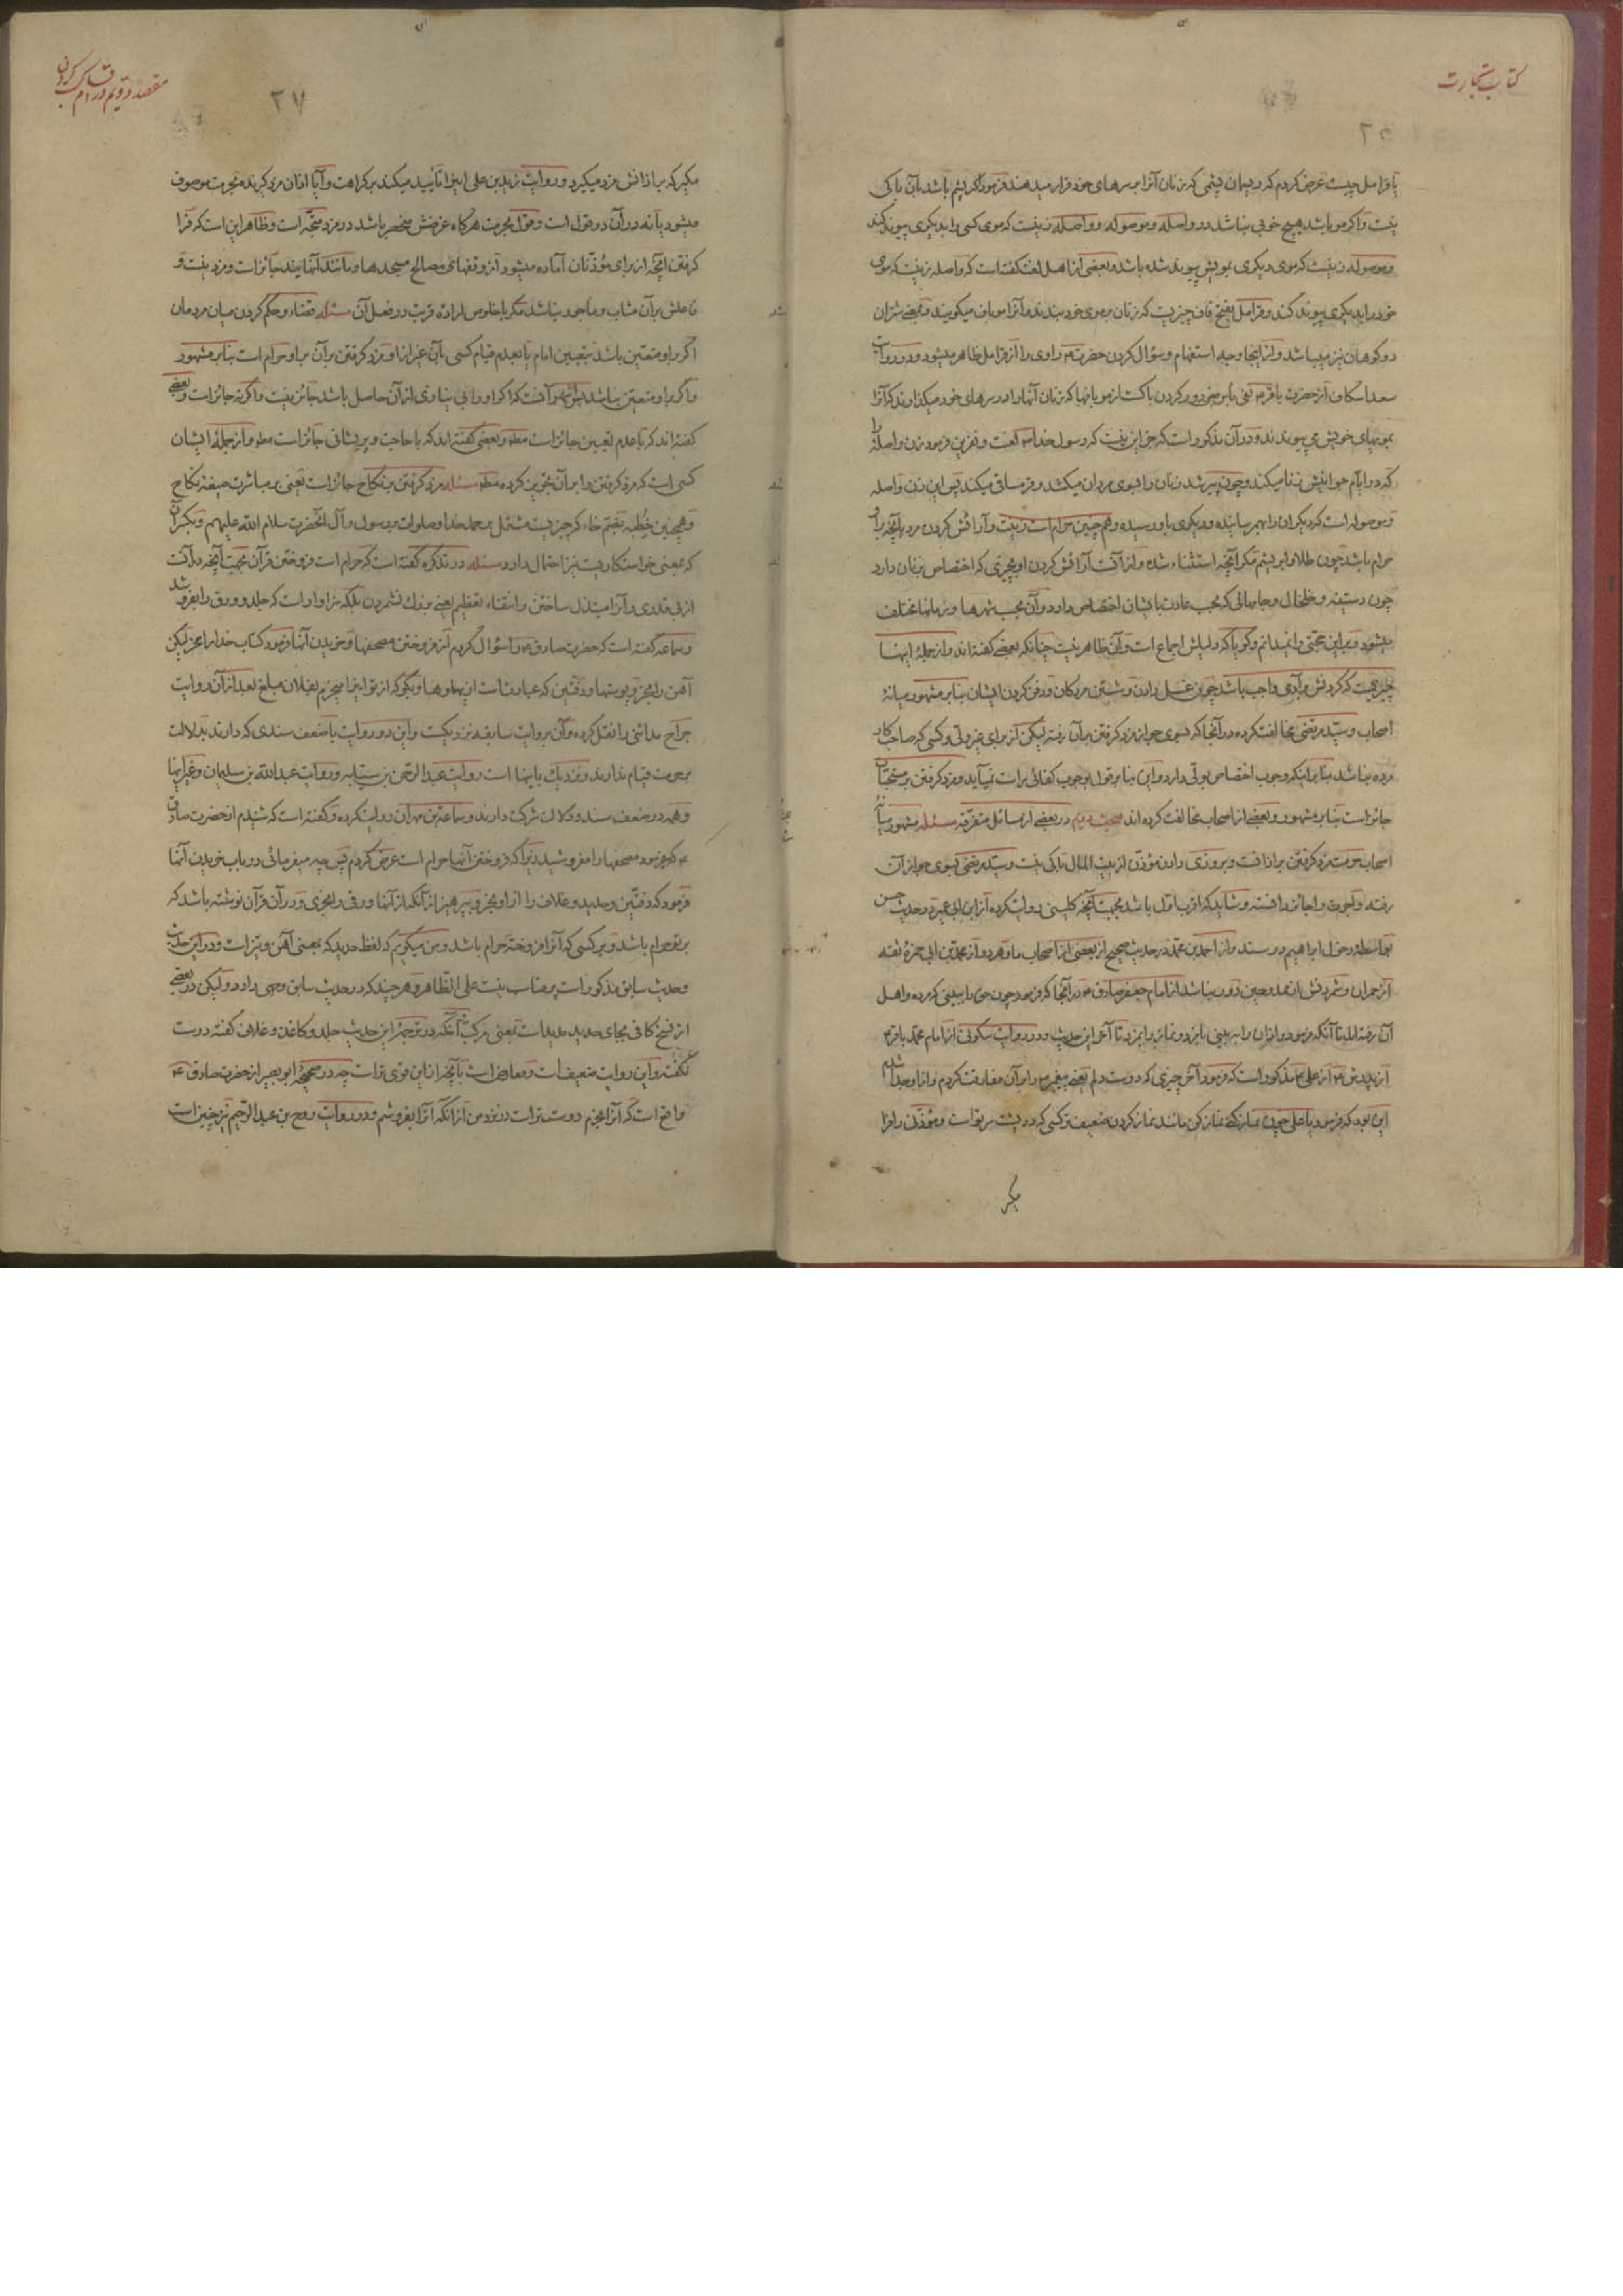 کتاب تجارت
یا قرامل چیست عرض کردم که ریسمان پشمی که زنان آنرا بسرهای خود قرار میدهند فرمود اگر پشم باشد بآن باکی
نیست و اگر مو باشد هیچ خوبی نباشد در واصله و موصوله و واصله زنیست که موی کسی را بدیگری پیوند کند
و موصوله زنیست که موی دیگری بمویش پیوند شده باشد و بعضی از اهل لغت گفته است که واصله زنیست که موی
خود را بدیگری پیوند کند و قرامل بفتح قاف چیزیست که زنان بر موی خود بندند و آنرا موباف میگویند و بمعنی شتران
دو کوهان نیز میباشد و از اینجا وجه استفهام و سؤال کردن حضرت راوی را از قرامل ظاهر میشود و در روایت
سعد اسکاف از حضرت باقر
بمویهای خویش می پیوندند و در آن مذکور است که جز این نیست که رسول خدا لعنت و نفرین فرمود زن واصله را
که در ایام جوانیش زنا میکند و چون پیر شد زنان را بسوی مردان میکشد و قرمساقی میکند پس این زن واصله
و موصوله است که دیگران را بهم رسانیده و دیگری باو رسیده و همچنین حرام است زینت و آرائش کردن مرد بآنچه بر او
حرام باشد چون طلا و ابریشم مگر آنچه استثناء شده و از آنست آرائش کردن او بچیزی که اختصاص بزنان دارد
چون دستینه و خلخال و جامهائی که بحسب عادت بایشان اختصاص دارد و آن بحسب شهرها و زمانها مختلف
میشود و بر این حجتی را نمیدانم و گویا که دلیلش اجماع است و آن ظاهر نیست چنانکه بعضی گفته اند و از جمله اینها
چیزیست که کردنش بر آدمی واجب باشد چون غسل دادن و شستن مردگان و دفن کردن ایشان بنا بر مشهور میانه
اصحاب و سید مرتضی مخالفت کرده در آنجا که بسوی جواز مزد گرفتن بر آن رفته لیکن از برای غیر ولی و کسی که صاحب کار
مرده نباشد بنا بر اینکه وجوب اختصاص بولی دارد و این بنا بر قول بوجوب کفائی راست نمیآید و مزد گرفتن بر مستحبات
جائز است بنا بر مشهور و بعضی از اصحاب مخالفت کرده اند مبحث دویم در بعضی از مسائل متفرقه مسئله مشهور میانه
اصحاب حرمت مزد گرفتن بر اذانست و بروزی دادن مؤذن از بیت المال باکی نیست و سید مرتضی بسوی جواز آن
رفته و اجرت را جائز دانسته و شاید که اقرب اول باشد بجهت آنچه کلینی روایت کرده از ابن ابی عمیر در حدیث حسن
بواسطه دخول ابراهیم در سند و از احمد بن محمد در حدیث صحیح از بعضی از اصحاب ما و هر دو از محمد بن ابی حمزه ثقه
از حمران و شمردنش از ممدوحین دور نباشد از امام جعفر صادق در آنجا که فرمود چون حق را ببینی که مرده و اهل
آن رفته اند تا آنکه فرمود و اذان را ببینی بامزد و نماز را بمزد تا آخر این حدیث و در روایت سکونی از امام محمد باقر
از پدرش از علی مذکور است که فرمود آخر چیزی که دوست دلم یعنی پیغمبر را بر آن مفارقت کردم و از او جدا شدم
این بود که فرمود یا علی چون نماز کنی نماز کن مانند نماز کردن ضعیف تر کسی که در پشت سر تو است و مؤذنی را فرا
مگیر
مقصد دویم در اقسام کسب کردن
۲۷
مگیر که بر اذانش مزد میگیرد و روایت زید بن علی این را تأیید میکند بر کراهت و آیا اذان مزد گیرنده بحرمت موصوف
میشود یا نه در آن دو قول است و قول بحرمت هرگاه غرضش منحصر باشد در مزد متجه است و ظاهر این است که فرا
گرفتن آنچه از برای مؤذنان آماده میشود از وقفهای مصالح مسجدها و مانند آنها نیز جائز است و مزد نیست و
فاعلش بر آن مثاب و مأجور نباشد مگر با خلوص اراده قربت در فعل آن مسئله قضاء و حکم کردن میان مردمان
اگر بر او متعین باشد بتعیین امام یا بعدم قیام کسی بآن غیر از او مزد گرفتن بر آن بر او حرام است بنا بر مشهور
و اگر بر او متعین نباشد پس مشهور آنست که اگر او را بی نیازی از آن حاصل باشد جائز نیست و اگر نه جائز است و بعضی
گفته اند که با عدم تعیین جائز است مطلقا و بعضی گفته اند که با حاجت و پریشانی جائز است مطلقا و از جمله ایشان
کسی است که مزد گرفتن را بر آن تجویز کرده مطلقا مسئله مزد گرفتن بر نکاح جائز است یعنی بر مباشرت صیغه نکاح
و همچنین خطبه بضم خاء که چیزیست مشتمل بر حمد خدا و صلوات بر رسول و آل آنحضرت سلام الله علیهم و بکسر آن
که بمعنی خواستکاریست نیز احتمال دارد مسئله در تذکره گفته است که حرام است فروختن قرآن بجهت آنچه در آنست
از بی قدری و آنرا مبتذل ساختن و انتفاء تعظیم یعنی بزرگ نشمردن بلکه سزاوار است که جلد و ورق را بفروشد
و سماعه گفته است که حضرت صادق را سؤال کردم از فروختن مصحفها و خریدن آنها فرمود کتاب خدا را مخر لیکن
آهن را بخر و پوستها و دفتین که عبارتست از پهلوها و بگو که از تو این را میخرم بفلان مبلغ بعد از آن روایت
جراح مدائنی را نقل کرده و آن بروایت سابقه نزدیکست و این دو روایت با ضعف سندی که دارند بدلالت
بر حرمت قیام ندارند و نزدیک باینها است روایت عبد الرحمن بن سیابه و روایت عبد الله بن سلیمان و غیر اینها
و همه در ضعف سند و دلالت شرکت دارند و سماعة بن مهران روایت کرده و گفته است که شنیدم از حضرت صادق
که فرمود مصحفها را مفروشید زیرا که فروختن آنها حرام است عرض کردم پس چه میفرمائی در باب خریدن آنها
فرمود که دفتین و حدید و غلاف را از او بخر و بپرهیز از آنکه از آنها ورقی را بخری و در آن قرآن نوشته باشد که
بر تو حرام باشد و بر کسی که آنرا فروخته حرام باشد و من میگویم که لفظ حدید که بمعنی آهن و تیز است و در این حدیث
و حدیث سابق مذکور است مناسب نیست علی الظاهر و هر چند که در حدیث سابق وجهی دارد و لیکن در بعضی
از نسخ کافی بجای حدید
نگفته و این روایت ضعیف است و معارض است بآنچه از این قوی تر است چه در صحیحه ابو بصیر از حضرت صادق
واضح است که آنرا بخرم دوست تر است در نزد من از آنکه آنرا بفروشم و در روایت روح بن عبد الرحیم نیز چنین است